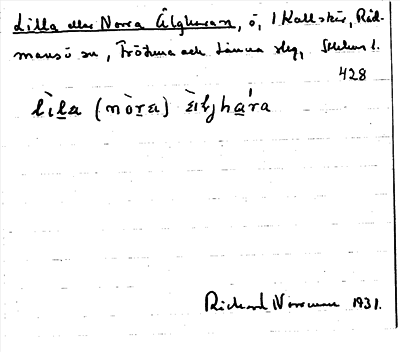 Lilla eller Norra Älgharan, ö, i Kallskär, Råd-
mansö sn, Frötuna och Länna slg, Sthlms l.
428
lìla (nòra) ä̀lghára
Rickard Norrman 1931.